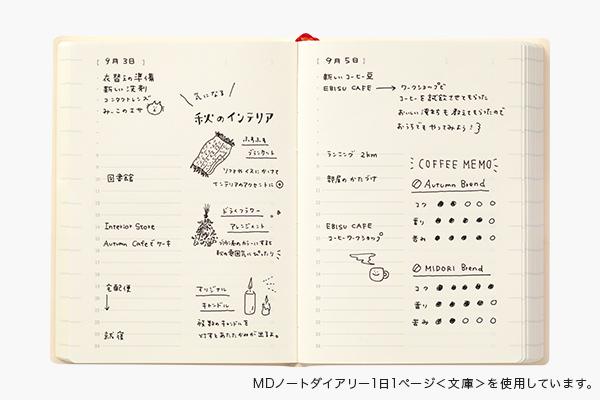 [ 9月3日 ]
・衣替えの準備
・新しい洗剤
・コンタクトレンズ
・みーこのエサ
気になる
秋のインテリア
ふわふわ
ブランケット
ソファやイスにかけて
インテリアのアクセントに
図書館
ドライフラワー
アレンジメント
Interior Store
Autumn Cafeでケーキ
秋の雰囲気にぴったり
宅配便
オリジナル
キャンドル
複数のキャンドルを
灯すとあたたかみが出るよ。
就寝
[ 9月5日 ]
・新しいコーヒー豆
EBISU CAFE → ワークショップで
コーヒーを試飲させてもらった
おいしい淹れ方も教えてもらったので
おうちでもやってみよう!
ランニング 2km
部屋のかたづけ
EBISU CAFE
コーヒーワークショップ
COFFEE MEMO
Autumn Blend
コク ●●○○○
香り ●●●●○
苦み ●●●●○
MIDORI Blend
コク ●●●●●
香り ●●●●○
苦み ●●●●○
MDノートダイアリー1日1ページ<文庫>を使用しています。